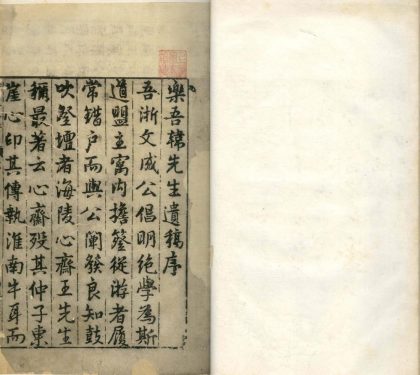 樂吾韓先生遺稿序
吾浙文成公倡明絶學為斯
道盟主寓内擔簦從游者屨
常錯户而與公闡發良知鼓
吹騷壇者海陵心齋王先生
稱最著云心齋殁其仲子東
崖心印其傳執淮南牛耳而